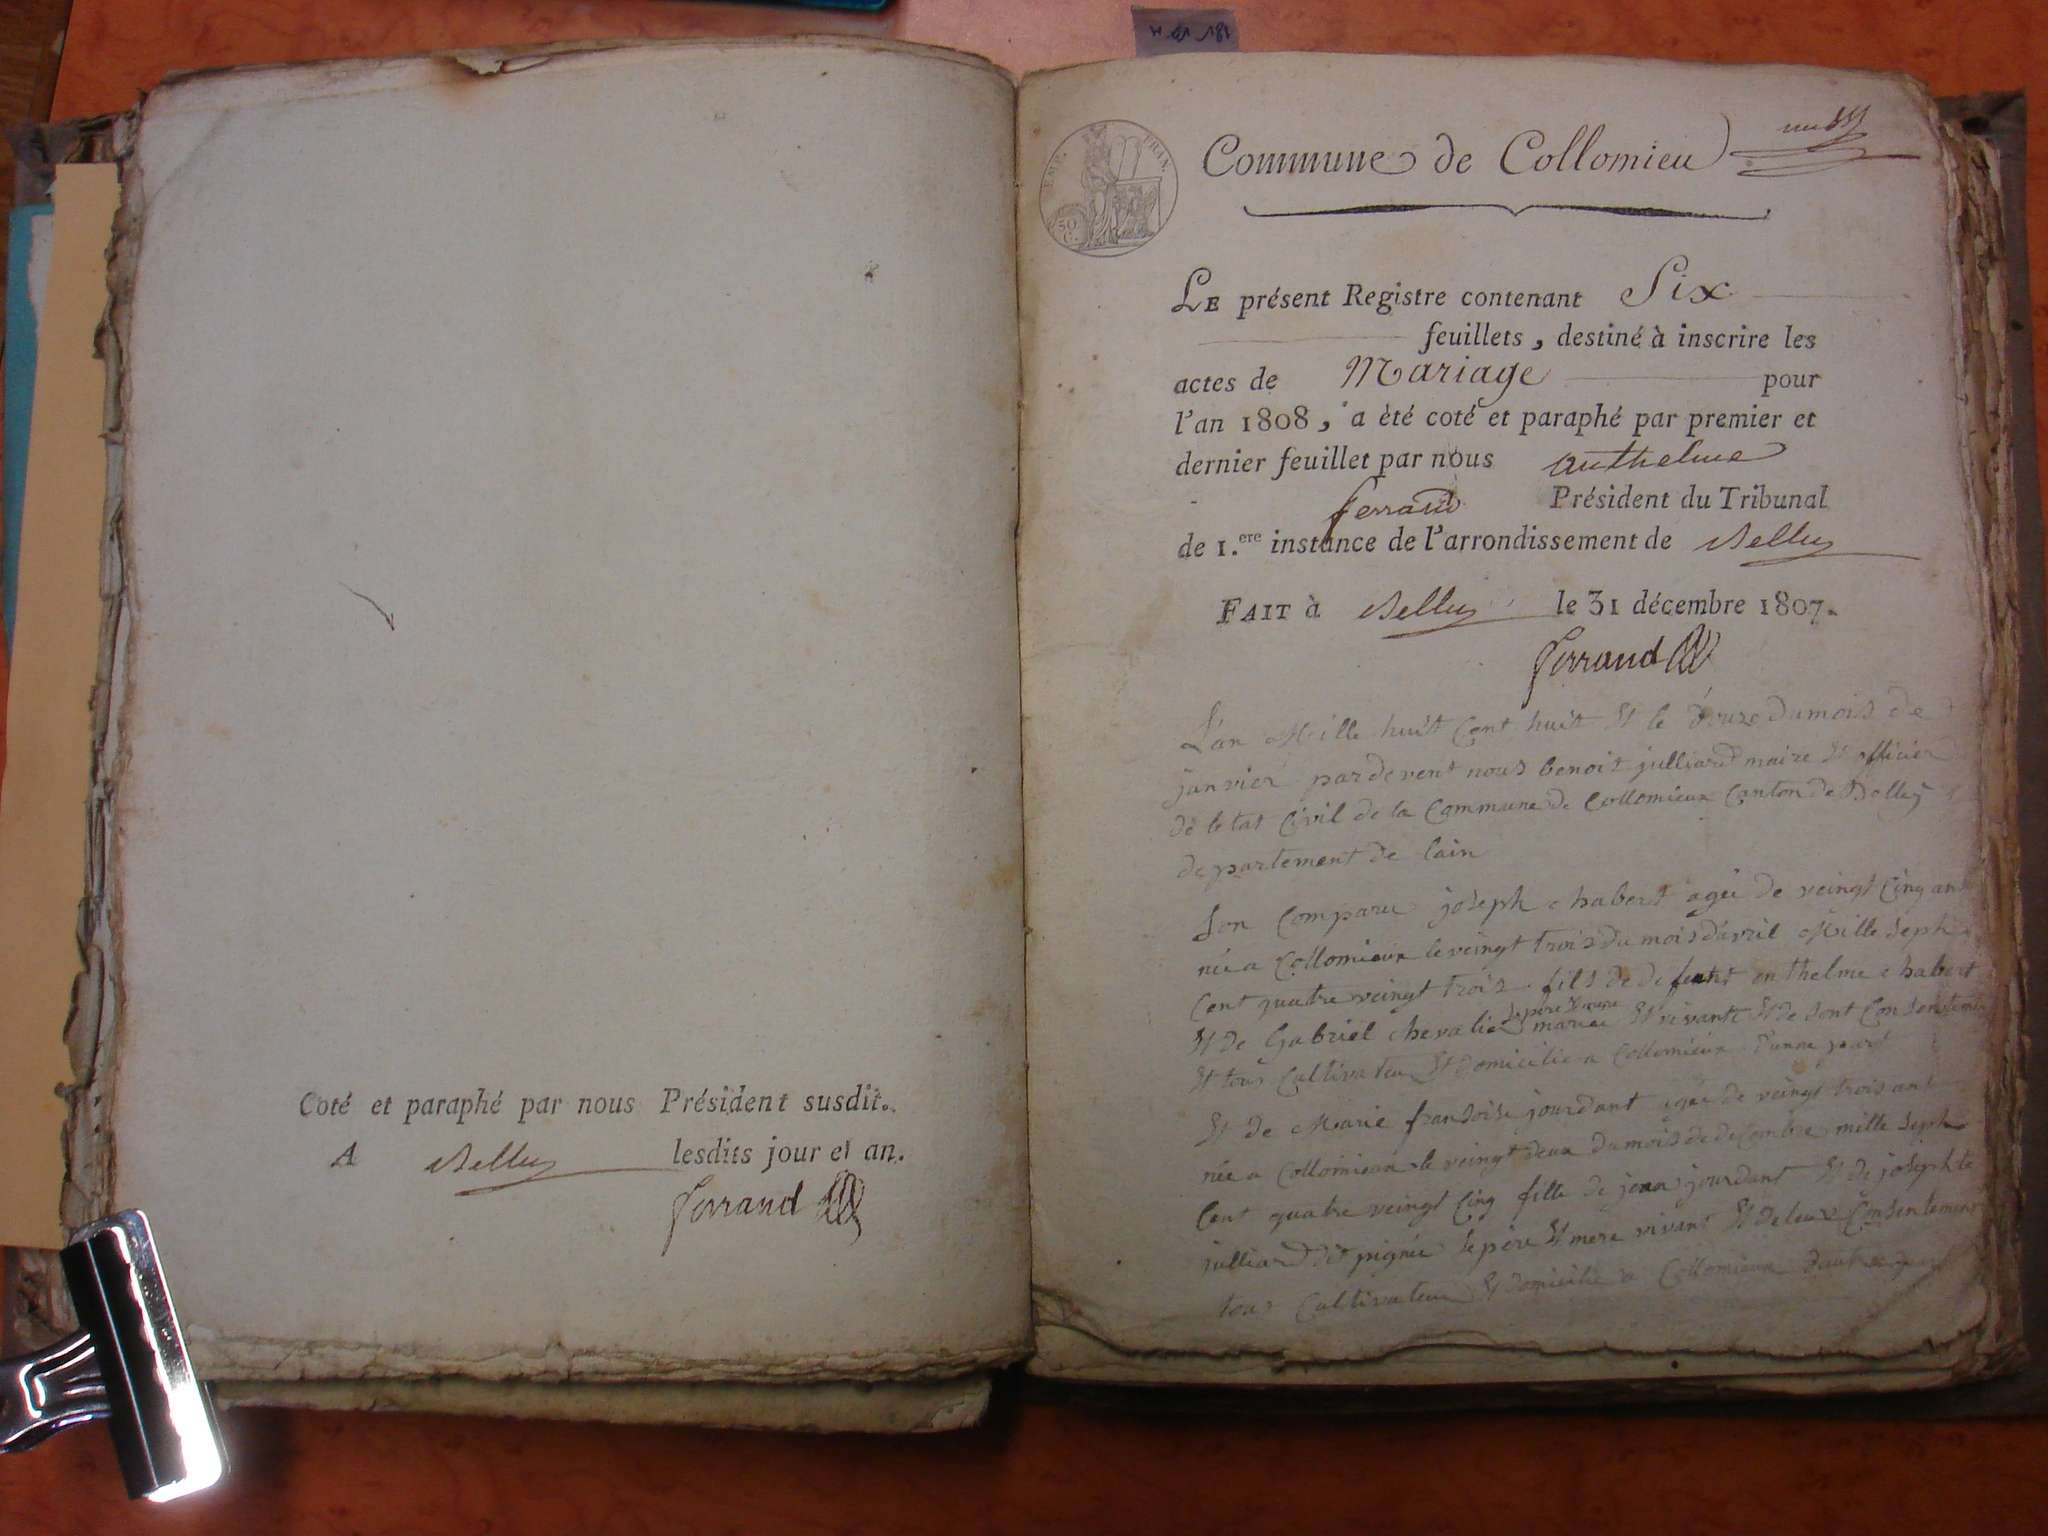 Coté et paraphé par nous Président susdit.
A Belley lesdits jour et an.
Ferrand
EMP. FRAN.
50 C.
Commune de Collomieu
LE présent Registre contenant Six
feuillets, destiné à inscrire les
actes de Mariage pour
l'an 1808, a été coté et paraphé par premier et
dernier feuillet par nous anthelme
ferrand Président du Tribunal
de 1.ere instance de l'arrondissement de Belley
FAIT à Belley le 31 décembre 1807.
Ferrand
L'an Mille huit Cent huit Et le douze du mois de
janvier pardevent nous benoit julliard maire Et officier
de letat Civil de la Commune de Collomieux Canton de Belley
departement de lain
Son Comparu joseph chabert agée de veingt Cinq ant
née a Collomieux le veingt trois du mois davril Mille Seph
Cent quatre veingt trois fils de defeunt enthelme chabert
Et de Gabriel chevalier se père & mere mariée Et vivante Et de Sont Consentement
Et tous Cultivateur Et Domicilie a Collomieux Dunne part
Et de Marie fransoise jourdant agée de veingt trois ant
née a Collomieux le veingt deux du mois de deCembre mille Seph
Cent quatre veingt Cinq fille de jean jourdant Et de josephte
julliard dit pignée Se père Et mere vivant Et de leur Consentement
tous Cultivateur Et Domicilie a Collomieux Dautre part